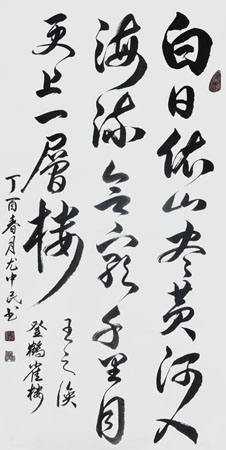 白日依山尽黄河入
海流欲穷千里目
更上一層楼
王之涣
登鶴雀楼
丁酉春月尤中民书